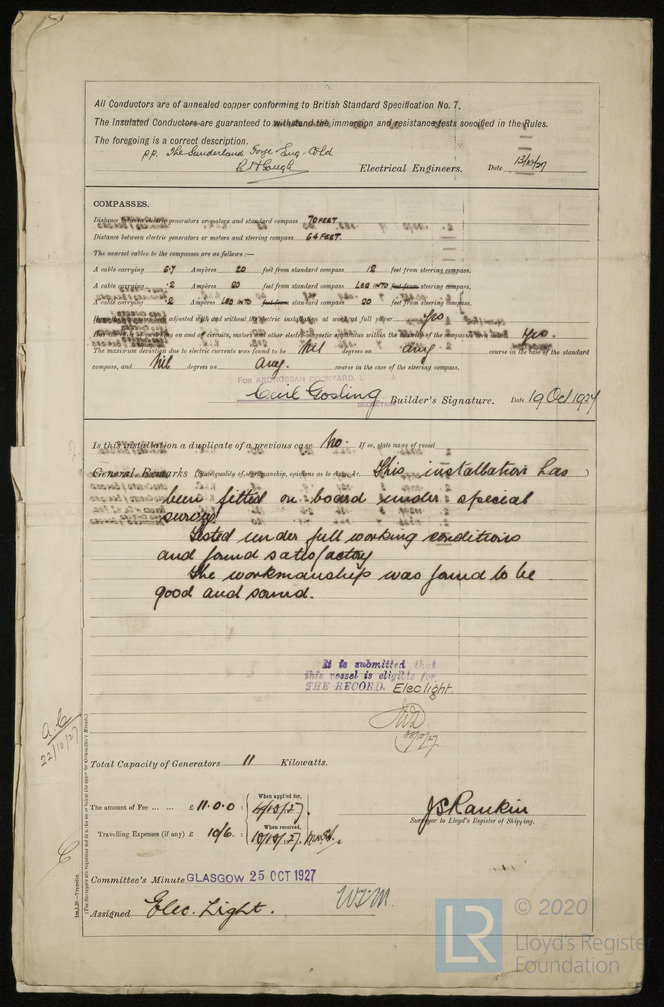 All Conductors are of annealed copper conforming to British Standard Specification No. 7.
The Insulated Conductors are guaranteed to withstand the immersion and resistance tests specified in the Rules.
The foregoing is a correct description.
p.p. The Sunderland Forge Eng. Co Ld
Electrical Engineers. Date 13/10/27
COMPASSES.
Distance between electric generators or motors and standard compass 70 FEET
Distance between electric generators or motors and steering compass 64 FEET.
The nearest cables to the compasses are as follows:—
A cable carrying 6.7 Ampères 20 feet from standard compass 12 feet from steering compass.
A cable carrying .2 Ampères 20 feet from standard compass LED INTO feet from steering compass.
A cable carrying .2 Ampères LED INTO feet from standard compass 20 feet from steering compass.
adjusted with and without the electric installation at work at full power Yes
Yes.
The maximum deviation due to electric currents was found to be Nil degrees on any course in the case of the standard
compass, and Nil degrees on any. course in the case of the steering compass.
FOR ARDROSSAN DOCKYARD, L
Gosling Builder's Signature. Date 19 Oct 1927
Is this installation a duplicate of a previous case No. If so, state name of vessel
General Remarks (State quality of workmanship, opinions as to class, &c. This installation has
been fitted on board under special
survey.
Tested under full working conditions
and found satisfactory
The workmanship was found to be
good and sound.
It is submitted that
this vessel is eligible for
THE RECORD. Elec. light.
20/10/27
22/10/27
Total Capacity of Generators 11 Kilowatts.
The amount of Fee ... ... £ 11.0.0 : When applied for, 4/10/27.
Travelling Expenses (if any) £ 10/6. : When received,
J S Rankin
Surveyor to Lloyd's Register of Shipping.
Committee's Minute GLASGOW 25 OCT 1927
Assigned Elec. Light.
LR © 2020
Lloyd's Register
Foundation